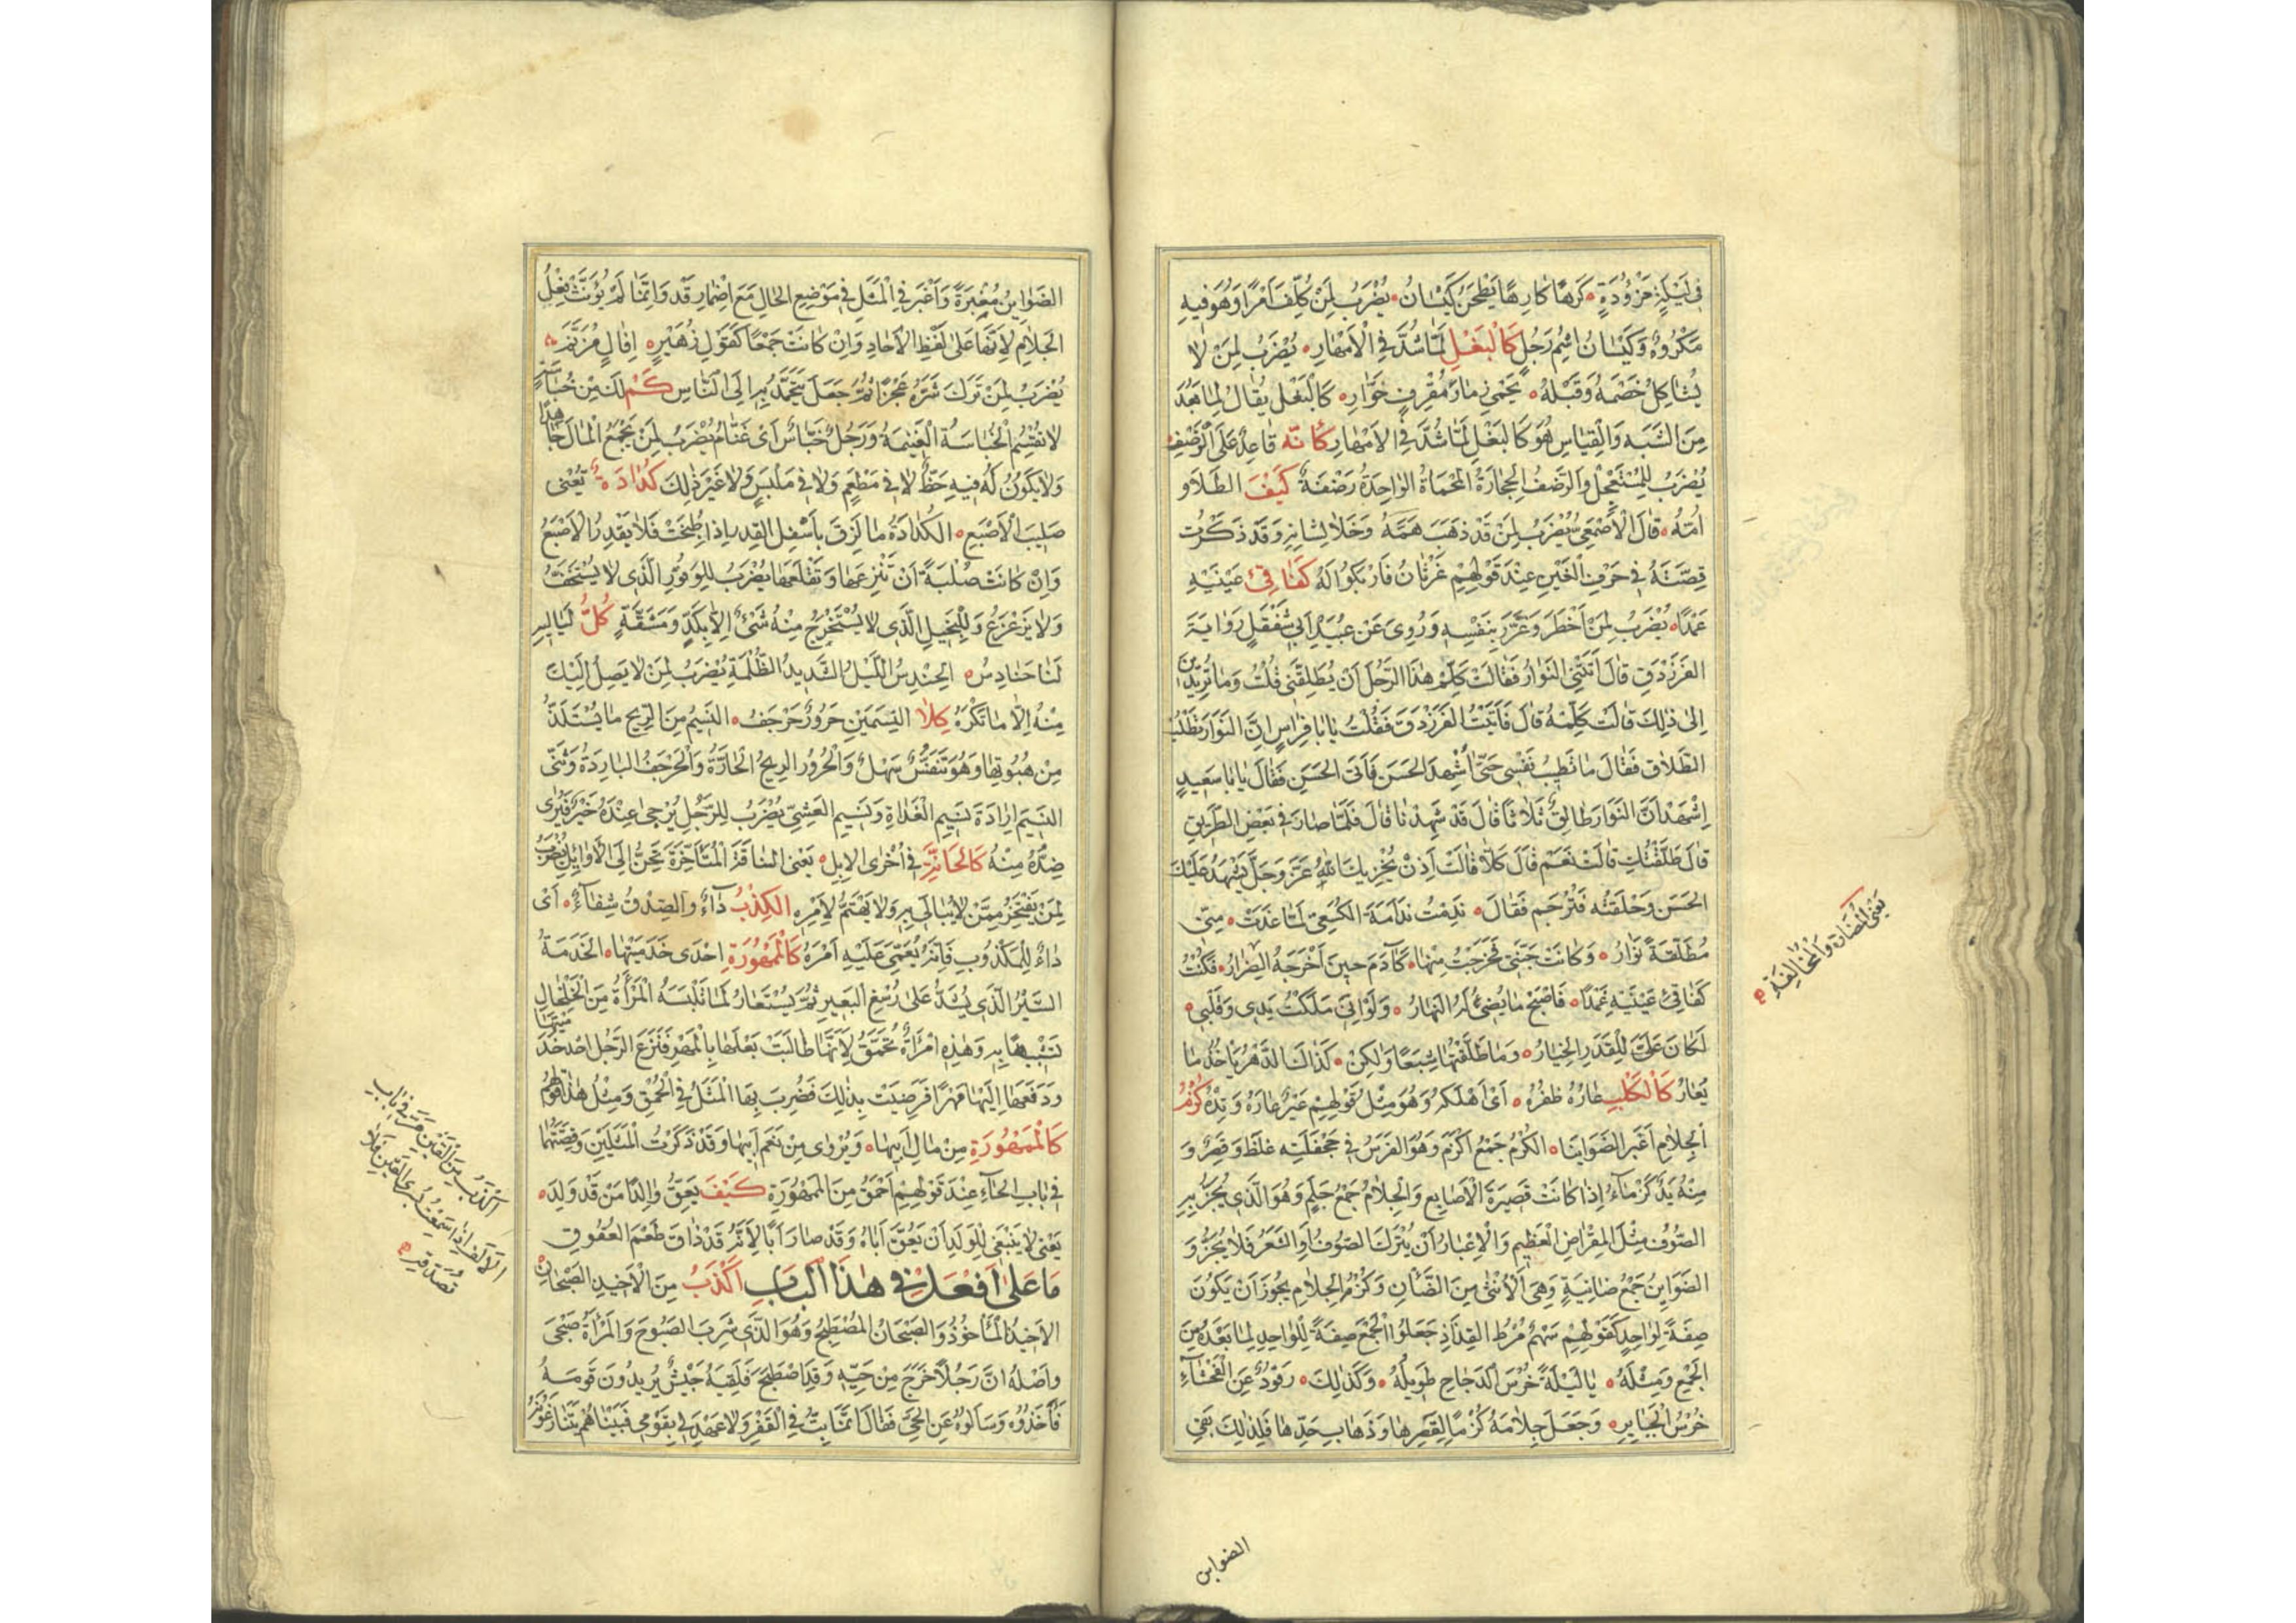 في ليلة مزؤدة كرها كارها يطحن كيسان يضرب لمن كلف امرا وهو فيه
مكروه وكيسان اسم رجل كالبغل لما شد في الامهار يضرب لمن لا
يشاكل خصمه وقبله يحمي ذمار مقرف خوار كالبغل يقال لما بعد
من الشبه والقياس هو كالبغل لما شد في الامهار كأنه قاعد على الرضف
يضرب للمستعجل والرضف الحجارة المحماة الواحدة رضفة كيف الطلاو
امه قال الاصمعي يضرب لمن قد ذهب همه وخلا لشانه وقد ذكرت
قصته في حرف الغين عند قولهم غرثان فاربكوا له كفاقئ عينيه
عمدا يضرب لمن اخطر وغرر بنفسه وروى عن عبيد ابي شفقل رواية
الفرزدق قال اتتني النوار فقالت كلم هذا الرجل ان يطلقني قلت وما تريدين
الى ذلك قالت كلمه قال فاتيت الفرزدق فقلت يا ابا فراس ان النوار تطلب
الطلاق فقال ما تطيب نفسي حتى أشهد الحسن فاتى الحسن فقال يا با سعيد
اشهد ان النوار طالق ثلاثا قال قد شهدنا قال فلما صار في بعض الطريق
قال طلقتك قالت نعم قال كلا قالت اذن يخزيك الله عز وجل يشهد عليك
الحسن وحلقته فترجم فقال ندمت ندامة الكسعي لما غدت مني
مطلقة نوار وكانت جنتي فخرجت منها كآدم حين اخرجه الضرار فكنت
كفاقئ عينيه عمدا فاصبح ما يضيئ له النهار ولو اني ملكت يدي وقلبي
لكان علي للقدر الخيار وما طلقتها شبعا ولكن كذاك الدهر ياخذ ما
يعار كالكلب عاره ظفره اى اهلكه وهو مثل قولهم عير عاره وتده كزم
الجلام اغبر الضوابنا الكزم جمع اكزم وهو الفرس في جحفلته غلظ وقصر و
منه يد كزماء اذا كانت قصيرة الاصابع والجلام جمع جلم وهو الذي يجز به
الصوف مثل المقراض العظيم والاغبار ان يترك الصوف او الشعر فلا يجز و
الضواين جمع ضاينة وهي الانثى من الضأن وكزم الجلام يجوز ان يكون
صفة لواحد كقولهم سهم مرط القذاذ جعلوا الجمع صفة للواحد لما بعده من
الجمع ومثله يا ليلة خرس الدجاج طويلة وكذلك رقود عن الفحشاء
خرس الجباير وجعل جلامه كزما لقصرها وذهاب حدها فلذلك بقي
الضواين
يعني المضارة والمخالفة
الضواين مغبرة واغبر في المثل في موضع الحال مع اضمار قد وانما لم يؤنث فعل
الجلام لانها على لفظ الآحاد وان كانت جمعا كقول زهير افال مزنم
يضرب لمن ترك شره عجزا ثم جعل يتحمد به الى الناس كم لك من خباسة
لا تقتسم الخباسة الغنيمة ورجل خباس اى غنام يضرب لمن يجمع المال جاهدا
ولا يكون له فيه حظ لا في مطعم ولا في ملبس ولا غير ذلك كدادة تعيى
صليب الاصبع الكدادة ما لزق باسفل القدر اذا طبخت فلا يقدر الاصبع
وان كانت صلبة ان تنزعها وتقلعها يضرب للوقور الذي لا يستخف
ولا يزعزع وللبخيل الذي لا يستخرج منه شئ الا بكد ومشقة كل لياليه
لنا حنادس الحندس الليل الشديد الظلمة يضرب لمن لا يصل اليك
منه الا ما تكره كلا النسيمين حرور حرجف النسيم من الريح ما يستلذ
من هبوبها وهو تنفس سهل والحرور الريح الحارة والحرجف الباردة وثنى
النسيم ارادة نسيم الغداة ونسيم العشي يضرب للرجل يرجى عنده خير فيرى
ضده منه كالحانة في اخرى الابل يعني الناقة المتأخرة تحن الى الاوايل يضرب
لمن يفتخر ممن لا يبالي به ولا يهتم لامره الكذب داء والصدق شفاء اى
داء للمكذوب فانه يعمى عليه امره كالممهورة احدى خدمتيها الخدمة
السير الذي يشد على رسغ البعير ثم يستعار لما تلبسه المرأة من الخلخال
تشبيها به وهذه امرأة تحمق لانها طالبت بعلها بالمهر فنزع الرجل احد خدمتيها
ودفعها اليها مهرا فرضيت بذلك فضرب بها المثل في الحمق ومثل هذا قولهم
كالممهورة من مال ابيها ويروى من نعم ابيها وقد ذكرت المثلين وقصتهما
في باب الحاء عند قولهم احمق من الممهورة كيف يعق والدا من قد ولد
يعنى لا ينبغي للولد ان يعق اباه وقد صار ابا لانه قد ذاق طعم العقوق
ما على افعل في هذا الباب اكذب من الاخيذ الصبحان
الاخيذ المأخوذ والصبحان المصطبح وهو الذي شرب الصبوح والمرأة صبحى
واصله ان رجلا خرج من حيه وقد اصطبح فلقيه جيش يريدون قومه
فاخذوه وسألوه عن الحي فقال انما بت في القفر ولا عهد لي بقومي فبينا هم يتنازعون